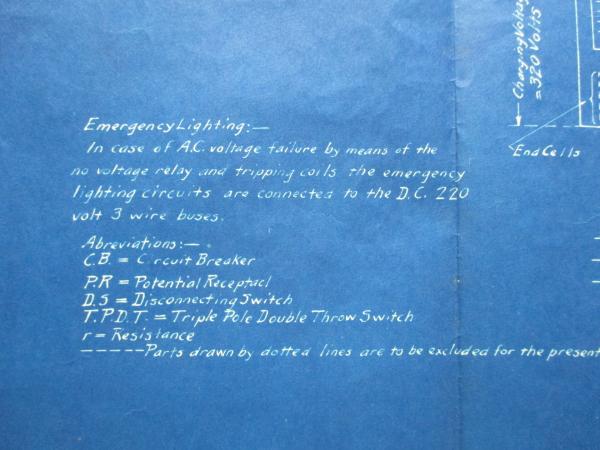 Charging Voltag
=320 Volts
End Cells
Emergency Lighting:—
In case of A.C. voltage failure by means of the
no voltage relay and tripping coils the emergency
lighting circuits are connected to the D.C. 220
volt 3 wire buses.
Abreviations:—
C.B. = Circuit Breaker
P.R = Potential Receptacl
D.S = Disconnecting Switch
T.P.D.T. = Triple Pole Double Throw Switch
r = Resistance
-----Parts drawn by dotted lines are to be excluded for the present